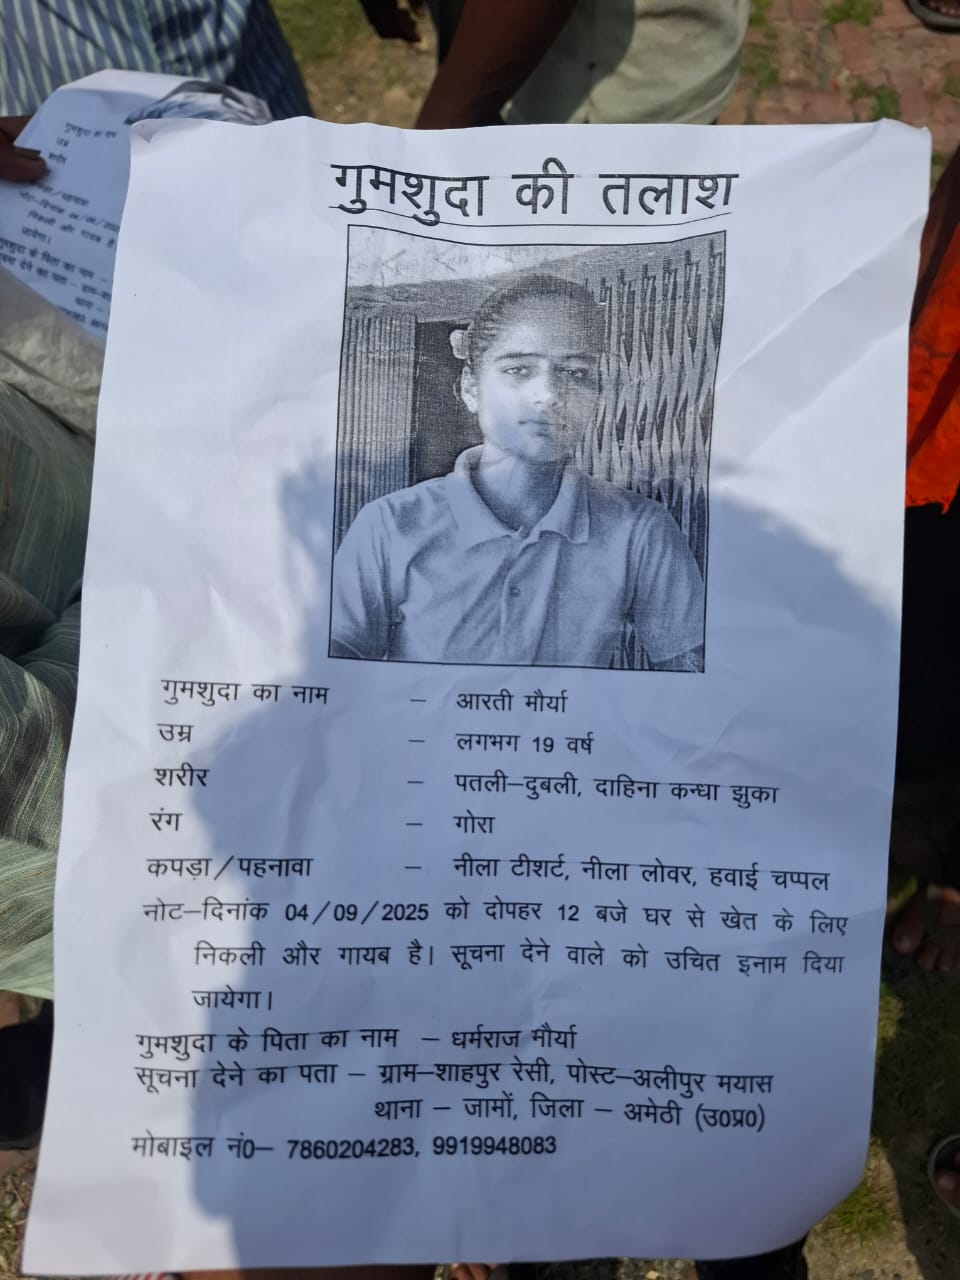 गुमशुदा की तलाश
गुमशुदा का नाम – आरती मौर्या
उम्र – लगभग 19 वर्ष
शरीर – पतली–दुबली, दाहिना कन्धा झुका
रंग – गोरा
कपड़ा/पहनावा – नीला टीशर्ट, नीला लोवर, हवाई चप्पल
नोट–दिनांक 04/09/2025 को दोपहर 12 बजे घर से खेत के लिए
निकली और गायब है। सूचना देने वाले को उचित इनाम दिया
जायेगा।
गुमशुदा के पिता का नाम – धर्मराज मौर्या
सूचना देने का पता – ग्राम–शाहपुर रेसी, पोस्ट–अलीपुर मयास
थाना – जामों, जिला – अमेठी (उ0प्र0)
मोबाइल नं0– 7860204283, 9919948083
गुमशुदा का नाम
उम्र
शरीर
निकली और गायब है
जायेगा।
गुमशुदा के पिता का नाम –
थाना –